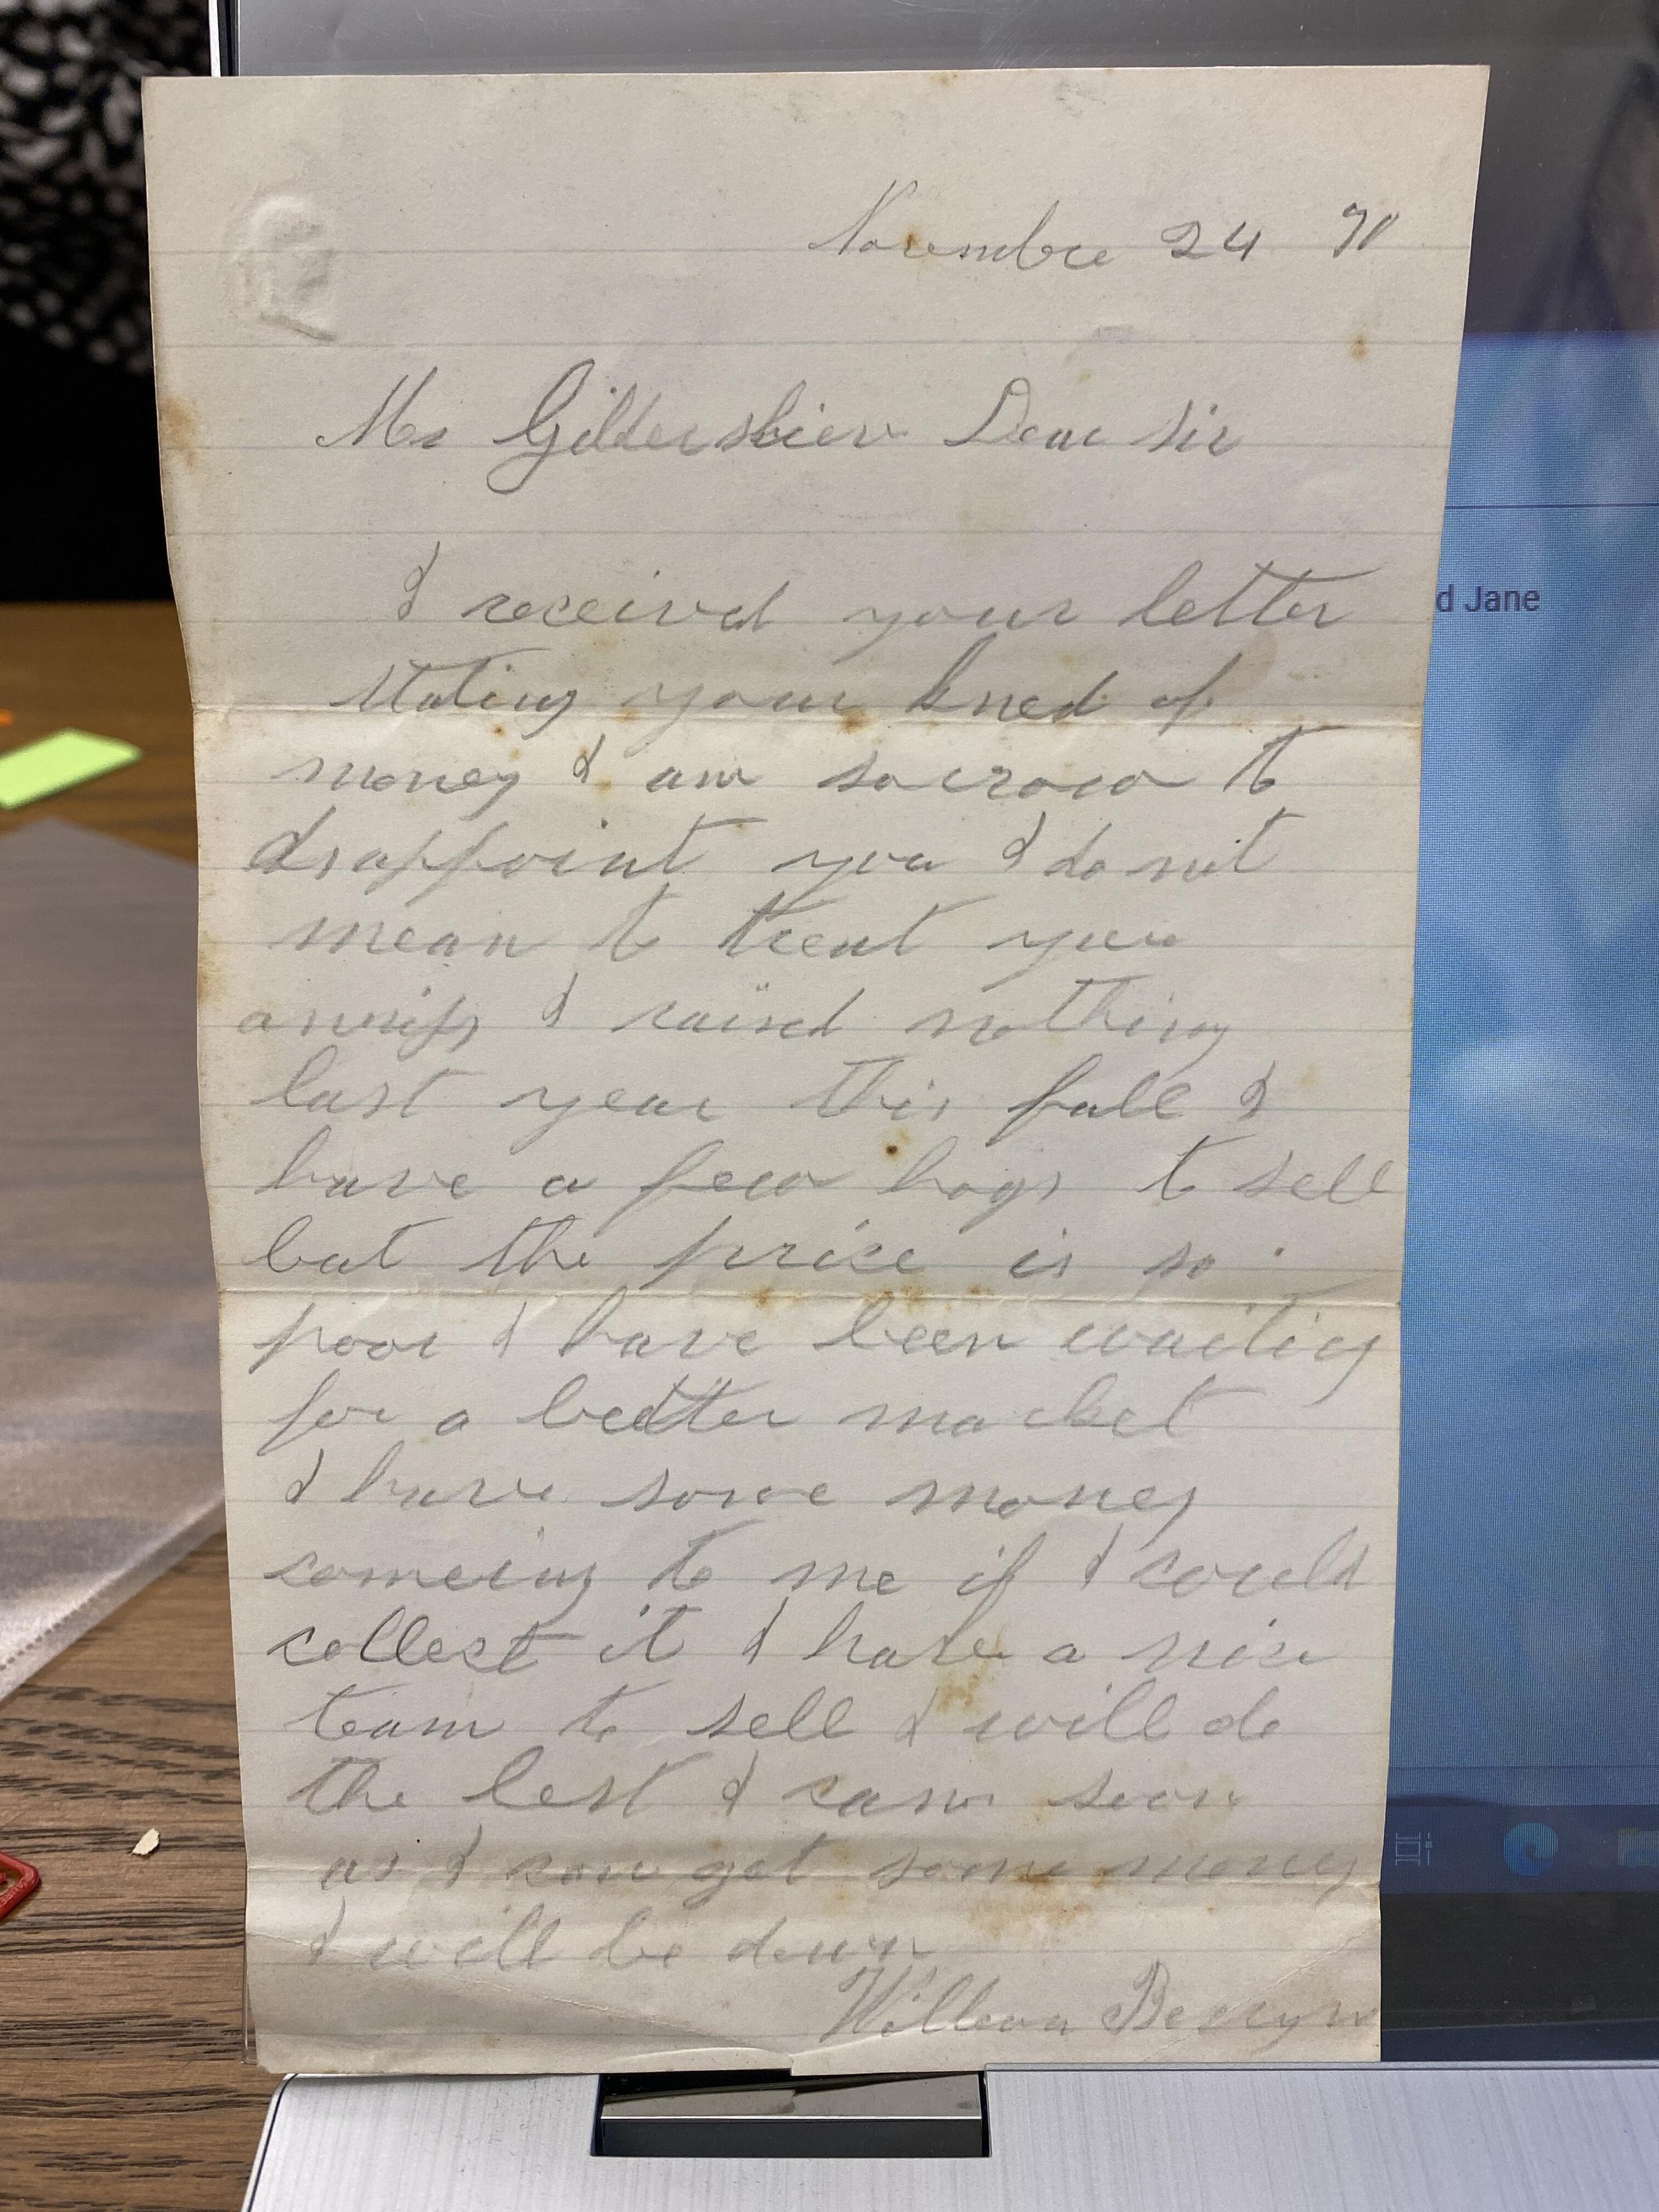 Novembre 24 70
Mr Gildersliev Dear Sir
I received your letter
stating your kned of
money I am sorrow to
disappoint you I do not
mean to treat you
I raised nothing
last year this fall I
have a few hogs to sell
but the price is so
poor I have been waiting
for a bedtter market
I have some money
comeing to me if I could
collect it I have a nice
team to sell I will do
the best I can soon
as I can get some money
I will be down
William
d Jane